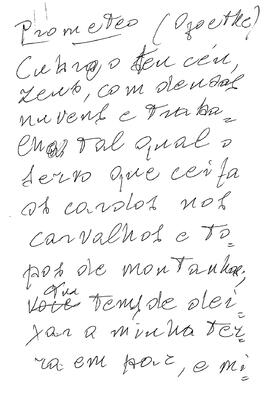 Prometeo (Goethe)
Cubra, o teu céu,
Zeus, com densas
nuvens e traba=
lhes tal qual o
servo que ceifa
os cardos nos
carvalhos e to=
pos de montanhas;
Tu
você tens de dei=
xar a minha ter=
ra em paz, e mi=